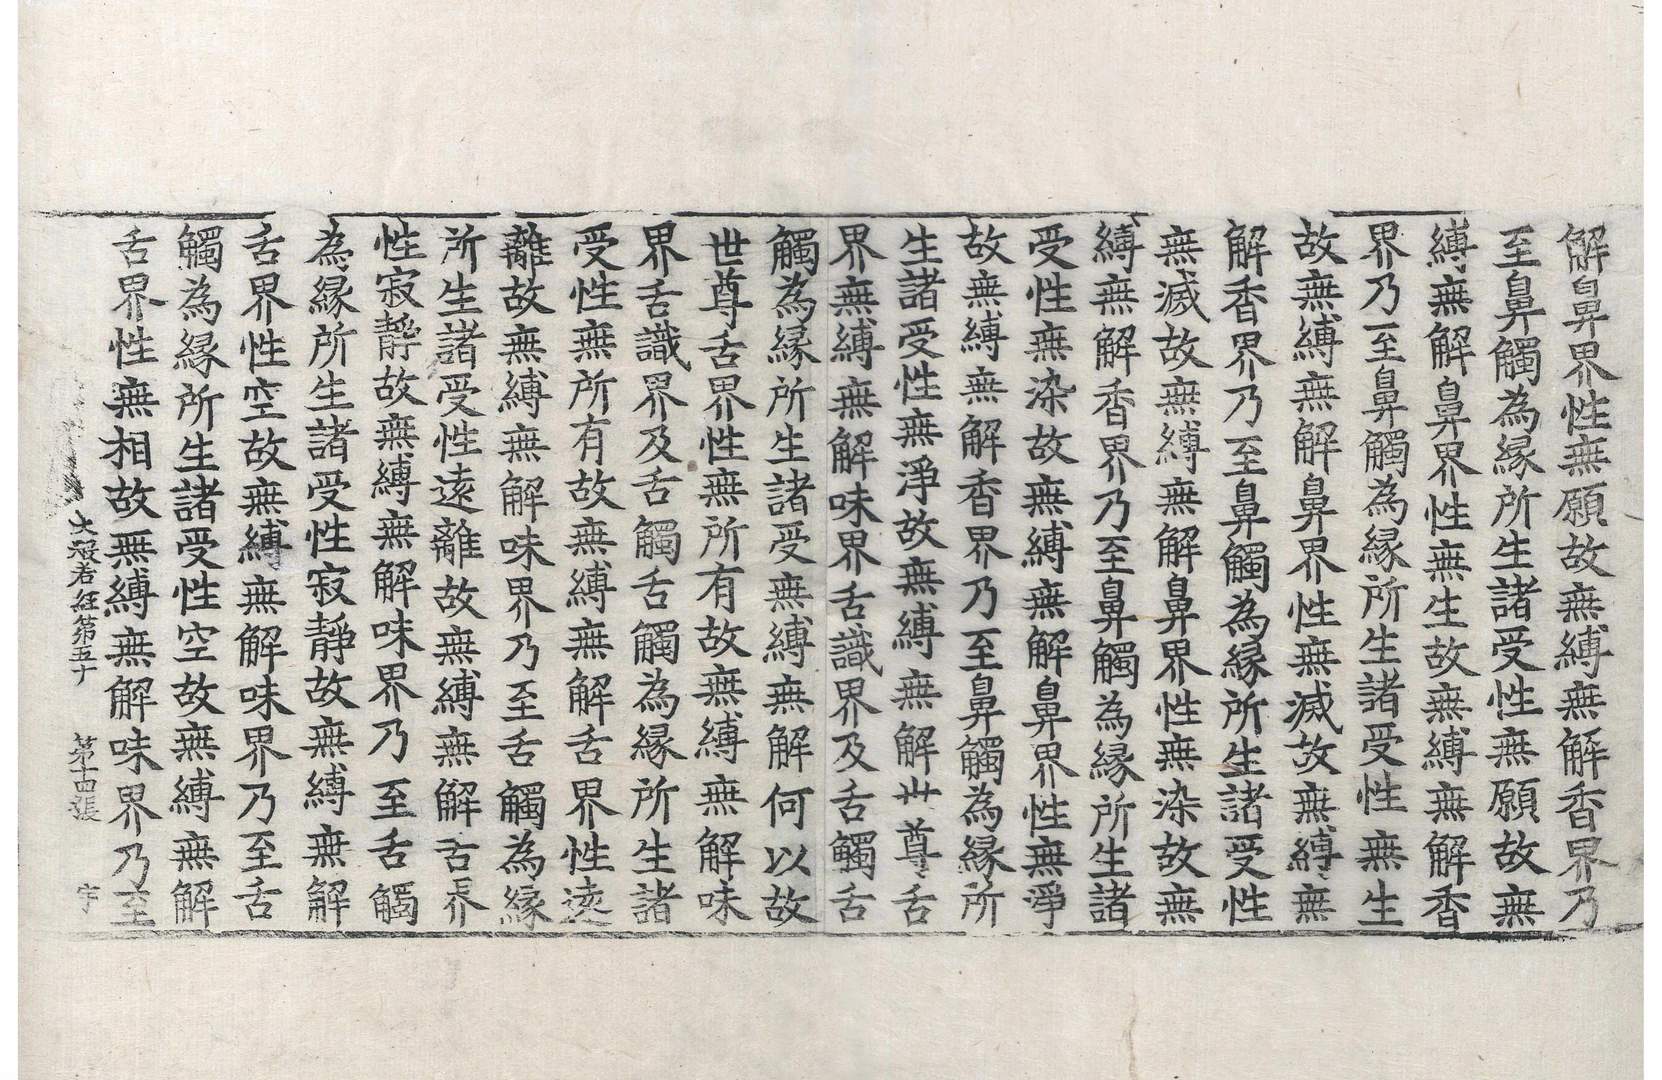 解鼻界性無願故無縛無解香界乃
至鼻觸為緣所生諸受性無願故無
縛無解鼻界性無生故無縛無解香
界乃至鼻觸為緣所生諸受性無生
故無縛無解鼻界性無滅故無縛無
解香界乃至鼻觸為緣所生諸受性
無滅故無縛無解鼻界性無染故無
縛無解香界乃至鼻觸為緣所生諸
受性無染故無縛無解鼻界性無淨
故無縛無解香界乃至鼻觸為緣所
生諸受性無淨故無縛無解世尊舌
界無縛無解味界舌識界及舌觸舌
觸為緣所生諸受無縛無解何以故
世尊舌界性無所有故無縛無解味
界舌識界及舌觸舌觸為緣所生諸
受性無所有故無縛無解舌界性遠
離故無縛無解味界乃至舌觸為緣
所生諸受性遠離故無縛無解舌界
性寂靜故無縛無解味界乃至舌觸
為緣所生諸受性寂靜故無縛無解
舌界性空故無縛無解味界乃至舌
觸為緣所生諸受性空故無縛無解
舌界性無相故無縛無解味界乃至
大般若経第五十 第十四張 宇